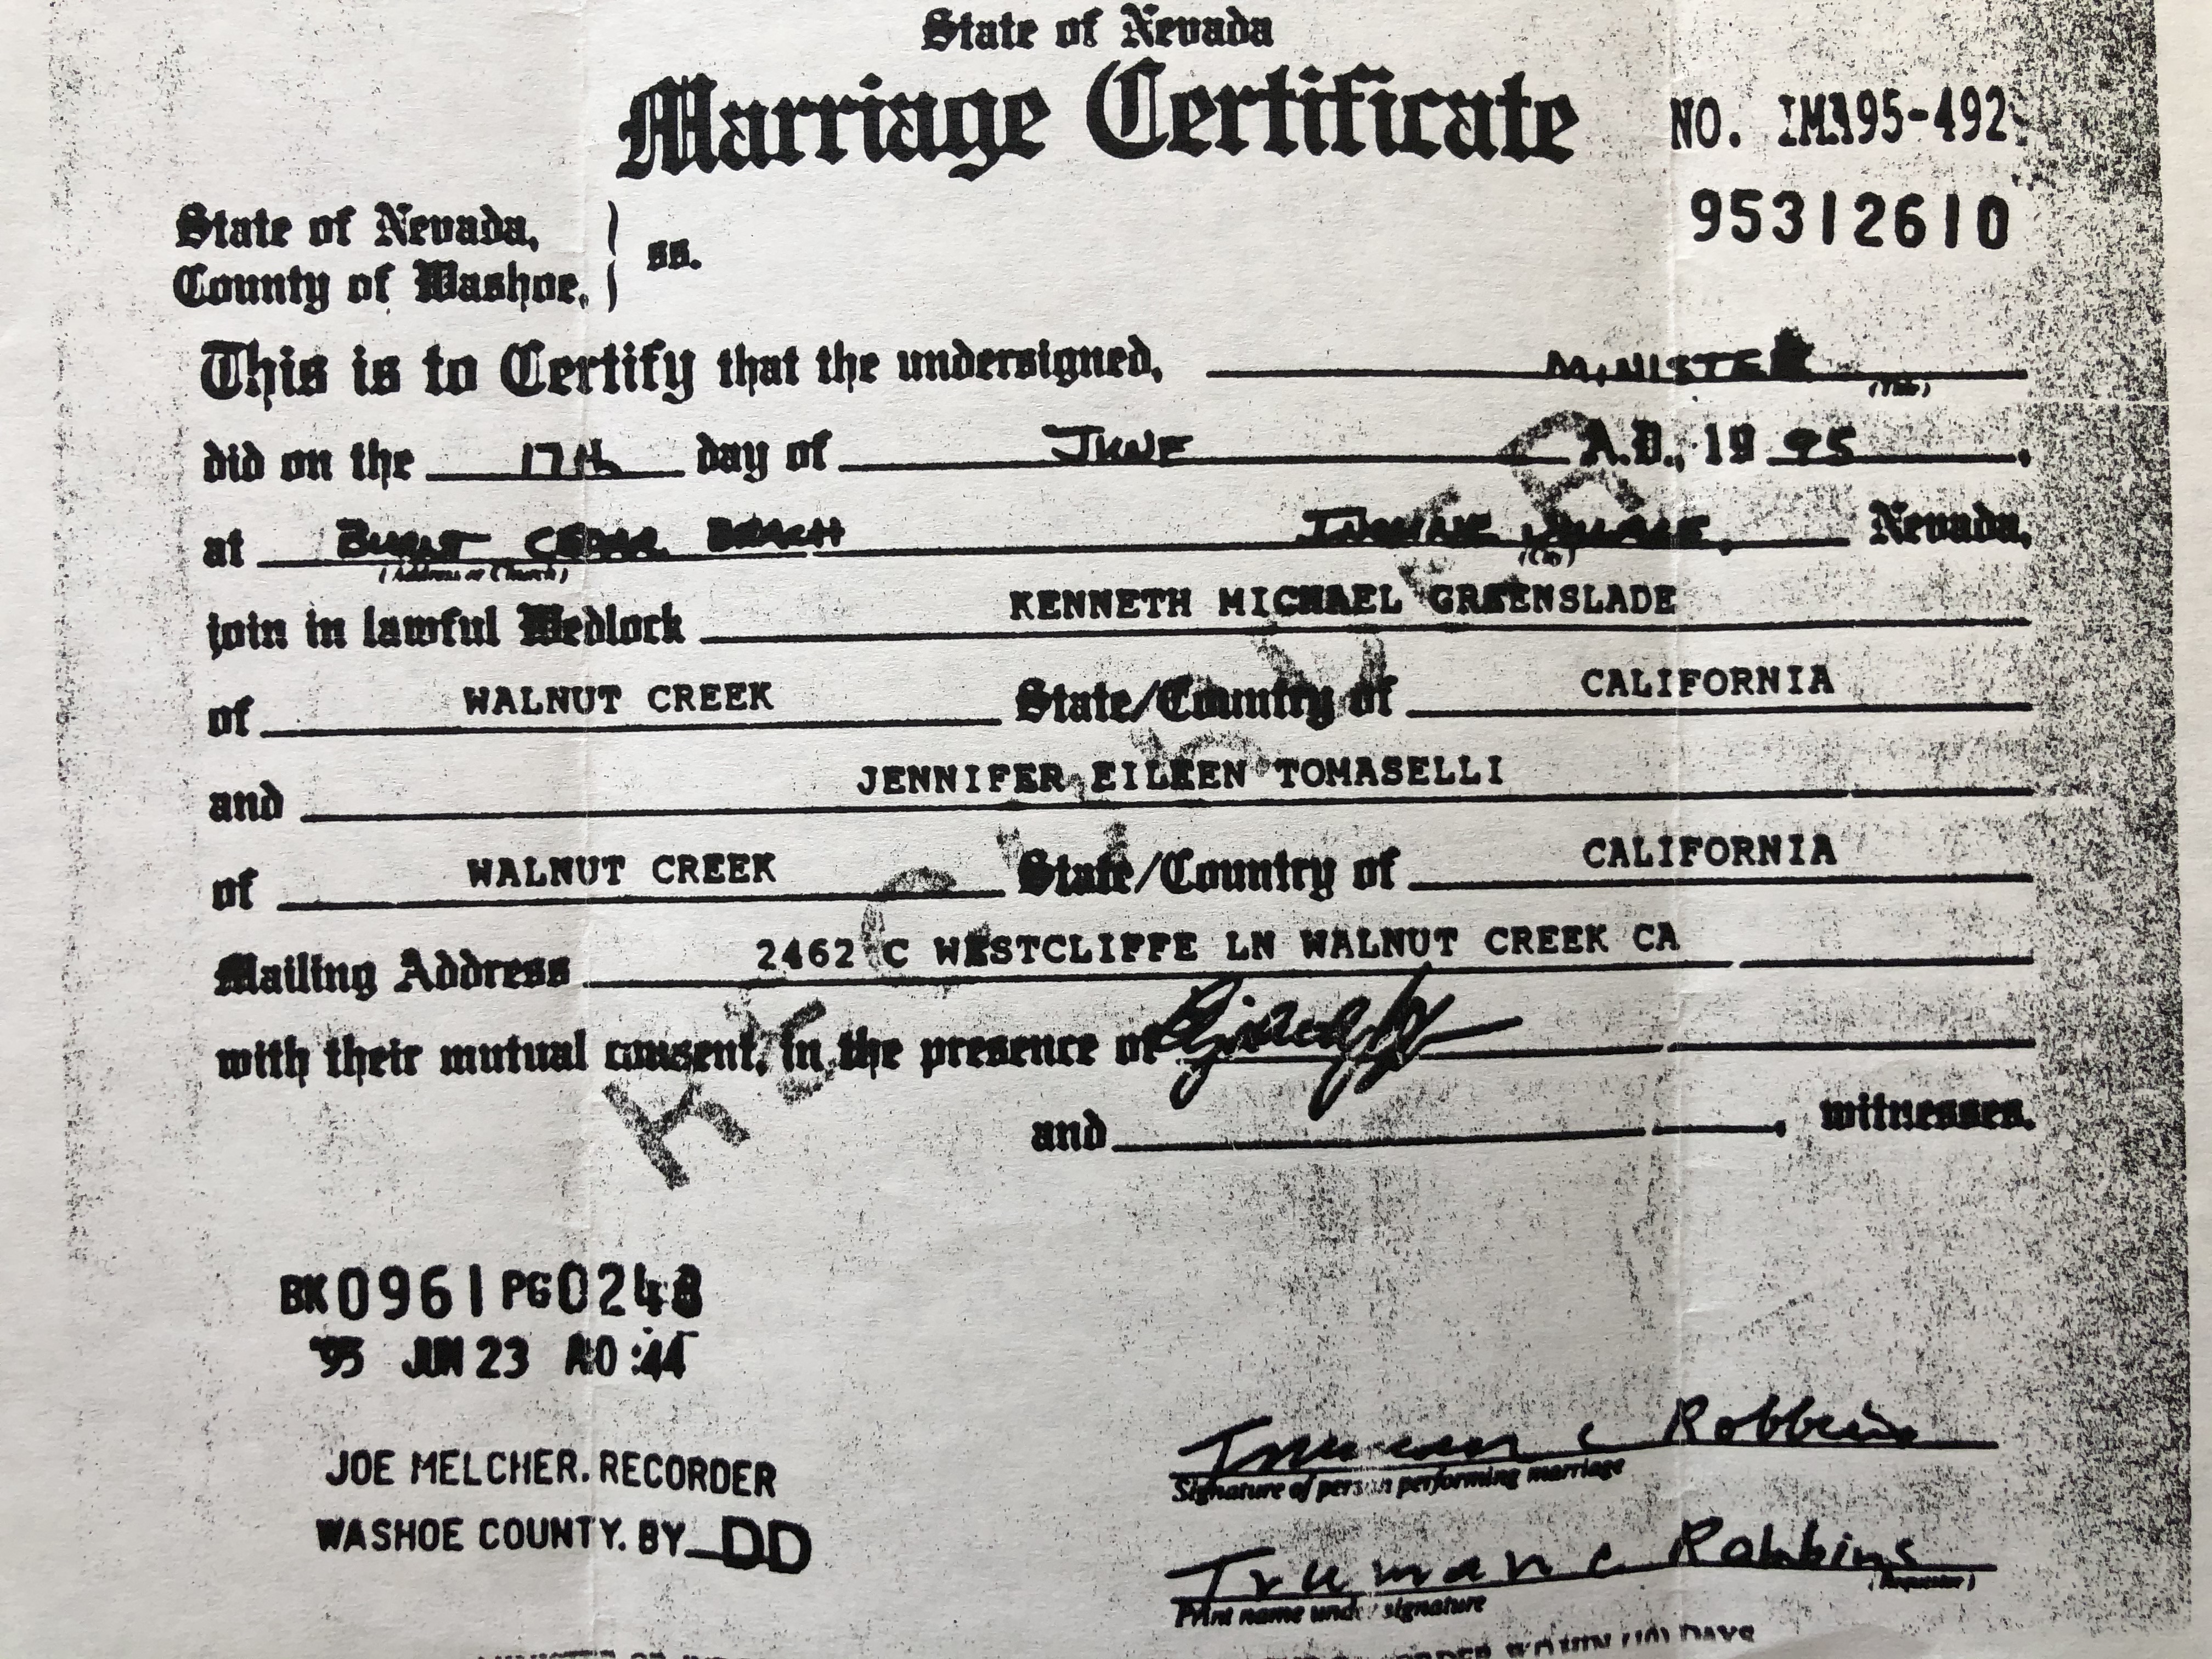 State of Nevada
Marriage Certificate
NO. IMA95-492
95312610
State of Nevada,
County of Washoe, } ss.
This is to Certify that the undersigned, MINISTER
(Title)
did on the 17th day of JUNE A.D., 19 95.
at BURNT CEDAR BEACH INCLINE VILLAGE, Nevada,
(Address or Church) (City)
join in lawful Wedlock KENNETH MICHAEL GREENSLADE
of WALNUT CREEK State/Country of CALIFORNIA
and JENNIFER EILEEN TOMASELLI
of WALNUT CREEK State/Country of CALIFORNIA
Mailing Address 2462 C WESTCLIFFE LN WALNUT CREEK CA
with their mutual consent, in the presence of
and , witnesses.
BK0961PG0248
'95 JUN 23 A10:44
JOE MELCHER, RECORDER
WASHOE COUNTY. BY DD
Truman C Robbins
Signature of person performing marriage
Truman C Robbins
(Requestor)
Print name under signature